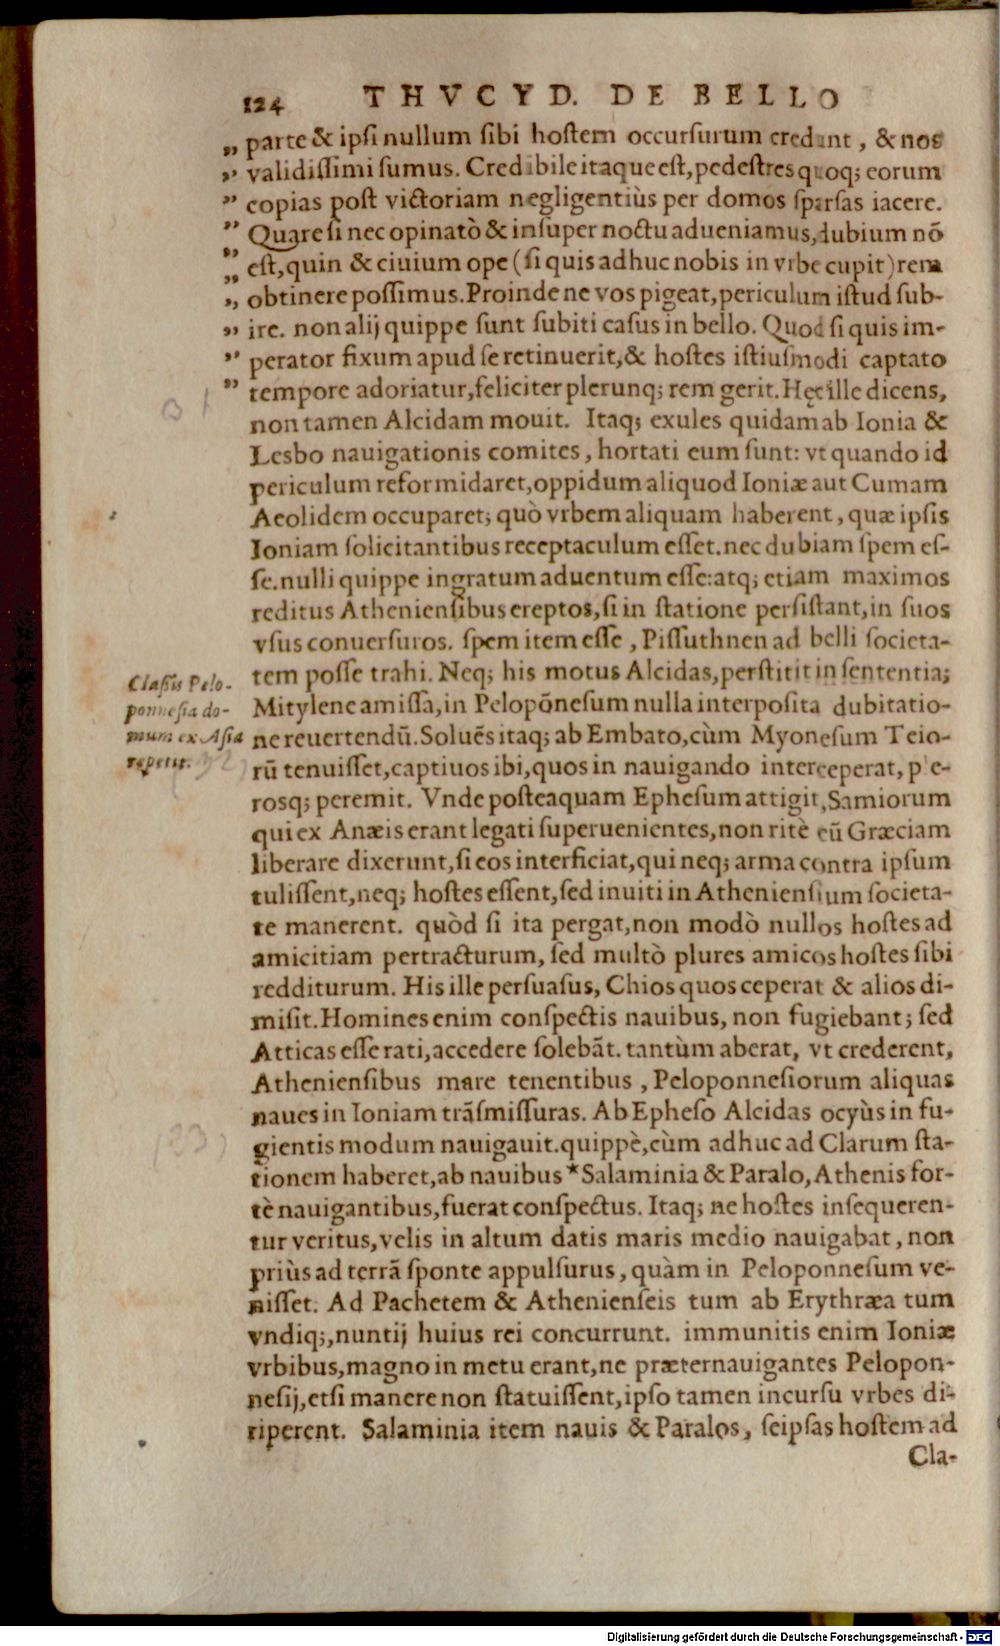 124 THVCYD. DE BELLO
„ parte & ipsi nullum sibi hostem occursurum credant, & nos
„ validissimi sumus. Credibile itaque est, pedestres quoq; eorum
„ copias post victoriam negligentiùs per domos sparsas iacere.
„ Quare si nec opinatò & insuper noctu adueniamus, dubium nõ
„ est, quin & ciuium ope (si quis adhuc nobis in vrbe cupit) rem
„ obtinere possimus. Proinde ne vos pigeat, periculum istud sub-
„ ire. non alij quippe sunt subiti casus in bello. Quod si quis im-
„ perator fixum apud se retinuerit, & hostes istiusmodi captato
„ tempore adoriatur, feliciter plerunq; rem gerit. Hęc ille dicens,
non tamen Alcidam mouit. Itaq; exules quidam ab Ionia &
Lesbo nauigationis comites, hortati eum sunt: vt quando id
periculum reformidaret, oppidum aliquod Ioniæ aut Cumam
Aeolidem occuparet; quò vrbem aliquam haberent, quæ ipsis
Ioniam solicitantibus receptaculum esset. nec dubiam spem es-
se. nulli quippe ingratum aduentum esse: atq; etiam maximos
reditus Atheniensibus ereptos, si in statione persistant, in suos
vsus conuersuros. spem item esse, Pissuthnen ad belli societa-
tem posse trahi. Neq; his motus Alcidas, perstitit in sententia;
Mitylene amissa, in Pelopõnesum nulla interposita dubitatio-
ne reuertendũ. Soluẽs itaq; ab Embato, cùm Myonesum Teio-
rũ tenuisset, captiuos ibi, quos in nauigando interceperat, ple-
rosq; peremit. Vnde posteaquam Ephesum attigit, Samiorum
qui ex Anæis erant legati superuenientes, non ritè eũ Græciam
liberare dixerunt, si eos interficiat, qui neq; arma contra ipsum
tulissent, neq; hostes essent, sed inuiti in Atheniensium societa-
te manerent. quòd si ita pergat, non modò nullos hostes ad
amicitiam pertracturum, sed multò plures amicos hostes sibi
redditurum. His ille persuasus, Chios quos ceperat & alios di-
misit. Homines enim conspectis nauibus, non fugiebant; sed
Atticas esse rati, accedere solebãt. tantùm aberat, vt crederent,
Atheniensibus mare tenentibus, Peloponnesiorum aliquas
naues in Ioniam trãsmissuras. Ab Epheso Alcidas ocyùs in fu-
gientis modum nauigauit. quippè, cùm adhuc ad Clarum sta-
tionem haberet, ab nauibus * Salaminia & Paralo, Athenis for-
tè nauigantibus, fuerat conspectus. Itaq; ne hostes insequeren-
tur veritus, velis in altum datis maris medio nauigabat, non
priùs ad terrã sponte appulsurus, quàm in Peloponnesum ve-
nisset. Ad Pachetem & Athenienseis tum ab Erythræa tum
vndiq;, nuntij huius rei concurrunt. immunitis enim Ioniæ
vrbibus, magno in metu erant, ne præternauigantes Pelopon-
nesij, etsi manere non statuissent, ipso tamen incursu vrbes di-
riperent. Salaminia item nauis & Paralos, seipsas hostem ad
Cla-
Classis Pelo-
ponnesia do-
mum ex Asia
repetit.
(33)
Digitalisierung gefördert durch die Deutsche Forschungsgemeinschaft - DFG